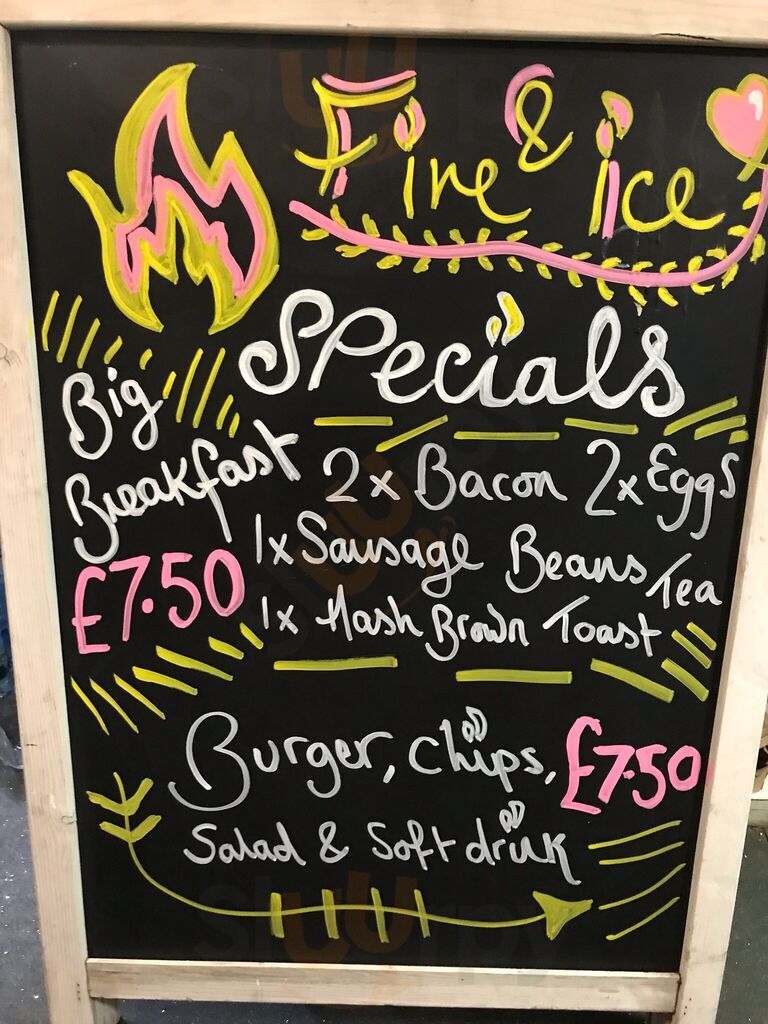 Fire & ice
Specials
Big
Breakfast
£7.50
2x Bacon 2x Eggs
1x Sausage Beans Tea
1x Hash Brown Toast
Burger, chips, £7.50
Salad & Soft drink
Sluurpy